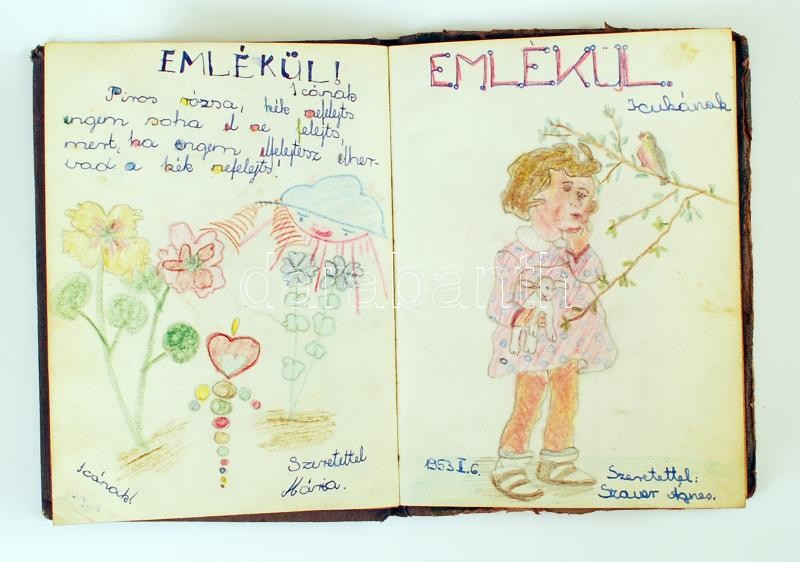 EMLÉKÜL!
Icónak
Piros rózsa, kék nefelejts
engem soha el ne felejts,
mert, ha engem elfelejtesz elher-
vad a kék nefelejts!
Icónak!
Szeretettel
Mária.
EMLÉKÜL.
Icukának
1953 I. 6.
Szeretettel:
Szauer Ágnes.
darabanth